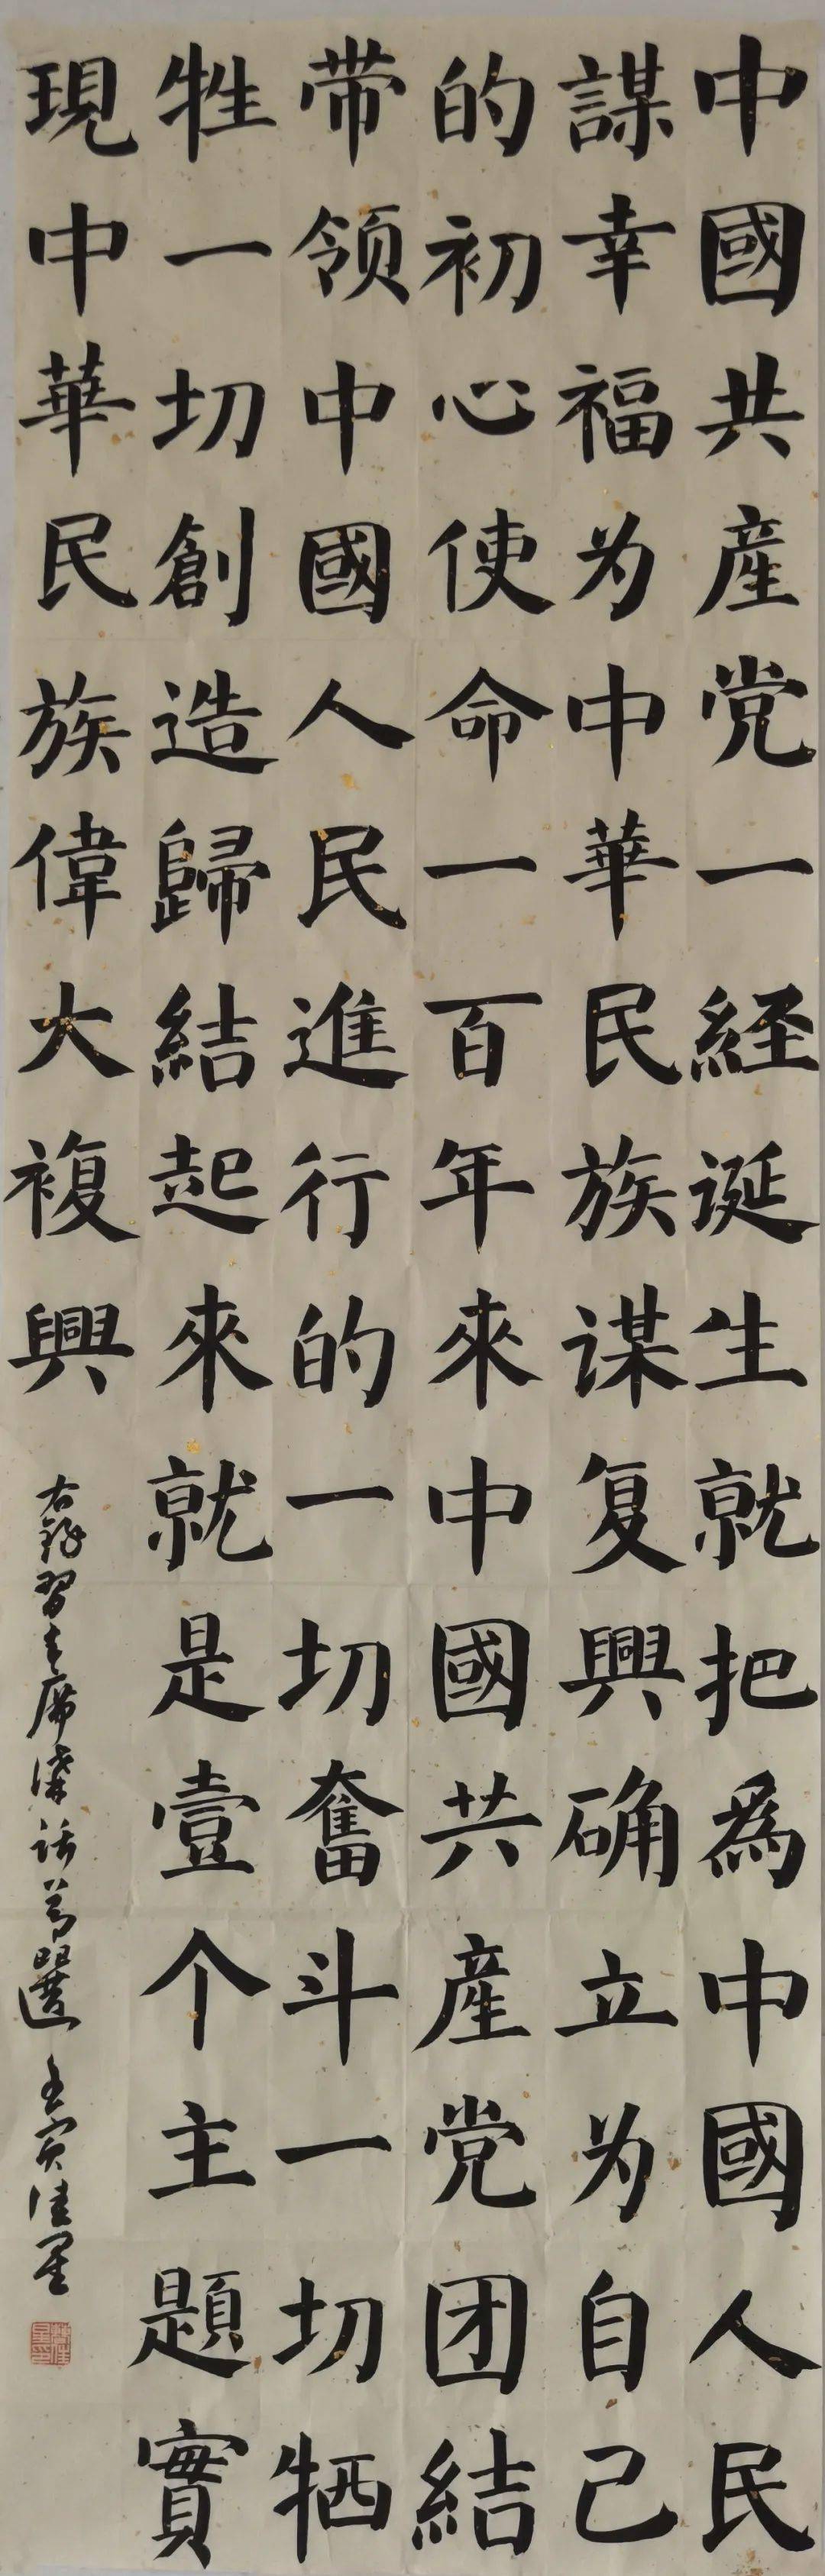 中國共産党一経诞生就把爲中國人民
謀幸福为中華民族谋复興确立为自己
的初心使命一百年來中國共産党团結
带领中國人民進行的一切奮斗一切牺
牲一切創造歸結起來就是壹个主題實
現中華民族偉大複興
右録習主席講話節選 壬寅佳星